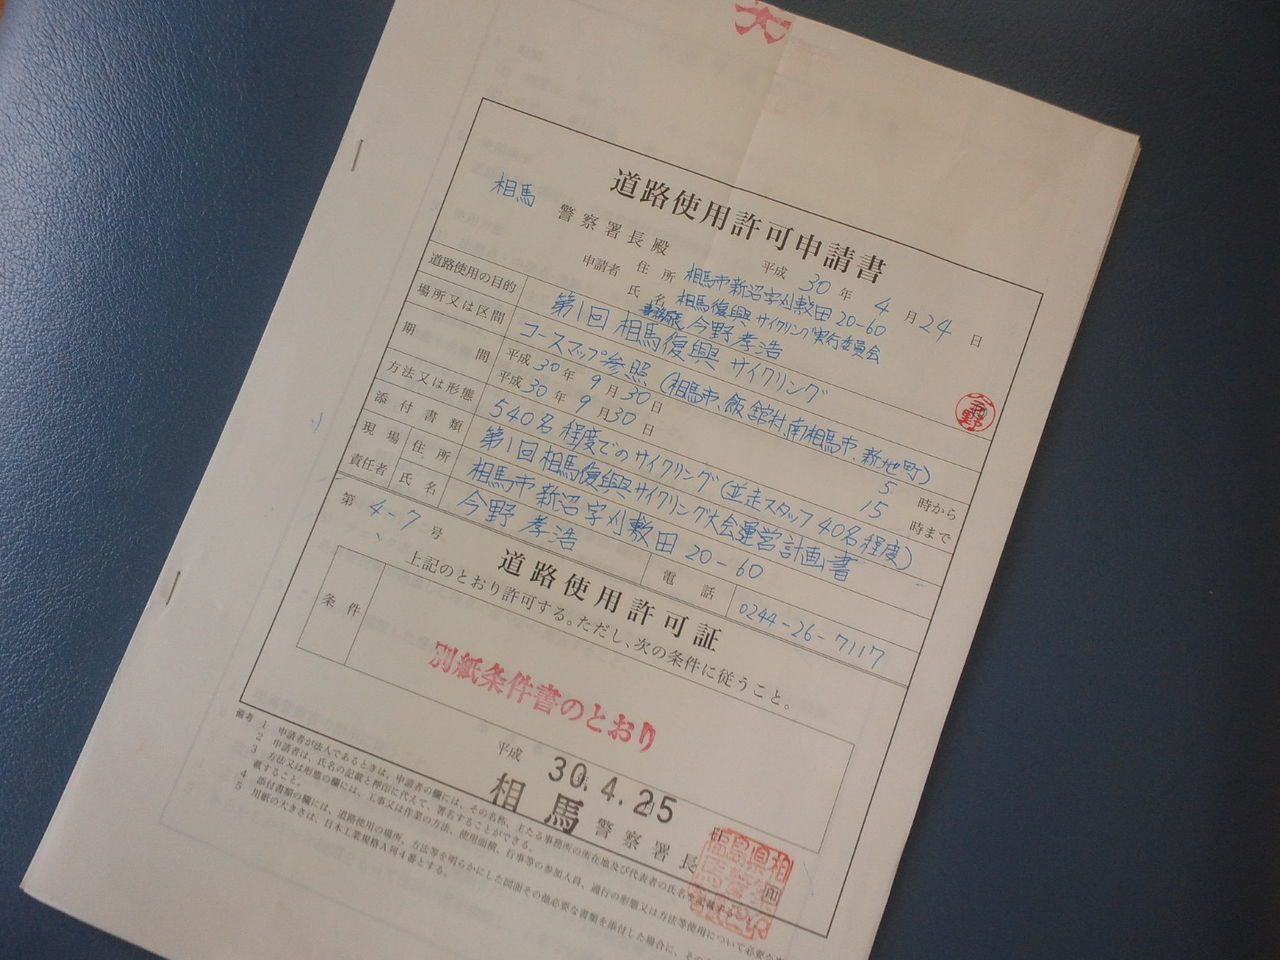 道路使用許可申請書
平成 30 年 4 月 24 日
相馬 警察署長殿
申請者 住所 相馬市新沼字刈敷田20-60
氏名 相馬復興サイクリング実行委員会
今野孝浩
道路使用の目的 第1回 相馬復興サイクリング
場所又は区間 コースマップ参照(相馬市、飯舘村、南相馬市、新地町)
期間 平成 30 年 9 月 30 日 5 時から
平成 30 年 9 月 30 日 15 時まで
方法又は形態 540名程度でのサイクリング(並走スタッフ40名程度)
添付書類 第1回相馬復興サイクリング大会運営計画書
現場責任者 住所 相馬市新沼字刈敷田20-60
氏名 今野孝浩 電話 0244-26-7117
第 4-7 号
道路使用許可証
上記のとおり許可する。ただし、次の条件に従うこと。
条件 別紙条件書のとおり
平成 30.4.25
相馬 警察署長 印
備考 1 申請者が法人であるときは、申請者の欄には、その名称、主たる事務所の所在地及び代表者の氏名を記載すること。
2 申請者は、氏名の記載と押印に代えて、署名することができる。
3 方法又は形態の欄には、工事又は作業の方法、使用面積、行事等の参加人員、通行の形態又は方法等使用について必要な事
載すること。
4 添付書類の欄には、道路使用の場所、方法等を明らかにした図面その他必要な書類を添付した場合に、その
5 用紙の大きさは、日本工業規格A列4番とする。